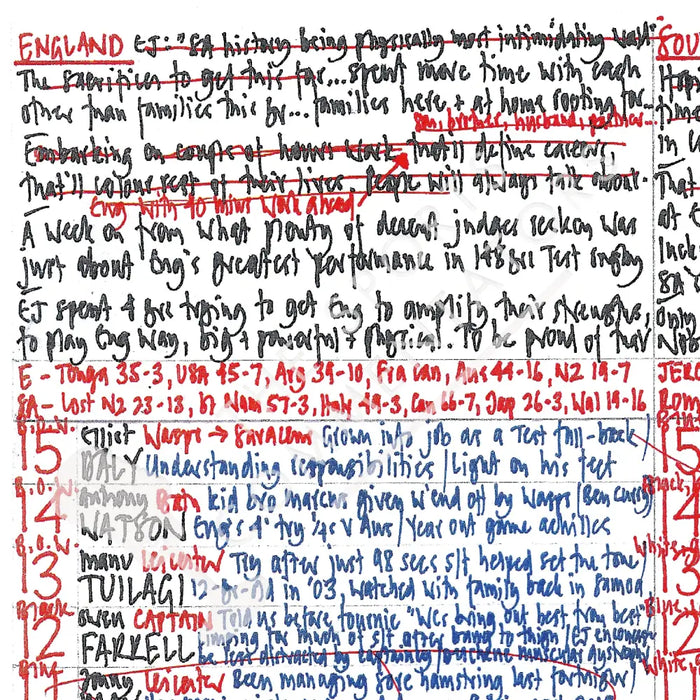 ENGLAND EJ: "SA history being physically most intimidating
The sacrifices to get this far... spent more time with each
other than families this yr... families here + at home rooting for...
son, brother, husband, partner...
Embarking on couple of hours work that'll define careers,
that'll colour rest of their lives. People will always talk about
Eng with 40 mins work ahead
A week on from what plenty of decent judges reckon was
just about Eng's greatest performance in 148 yrs Test rugby
EJ spent 4 yrs trying to get Eng to amplify their strengths,
to play Eng way, big + powerful + physical. To be proud of their
E - Tonga 35-3, USA 45-7, Arg 39-10, Fra Can, Aus 44-16, NZ 19-7
SA - Lost NZ 23-13, bt Nam 57-3, Italy 49-3, Can 66-7, Jap 26-3, Wal 19-16
15 Elliot Wasps → Saracens Grown into job as a Test full-back
DALY Understanding responsibilities / Light on his feet
B.O.W.
14 Anthony Bath kid bro Marcus given w'end off by Wasps (Ben Curry)
WATSON Eng's 4 try 1/4s v Aus / Year out game achilles
B.O.W.
13 Manu Leicester Try after just 98 secs s/f helped set the tone
TUILAGI 12 yr-old in '03, watched with family back in Samoa
Black
12 Owen CAPTAIN Told us before tournie "Wcs bring out best from best"
FARRELL Limping for much of s/f after bang to thigh / EJ
be less distracted by captaincy
Blue
Jonny Leicester Been managing
hamstring last fortnight